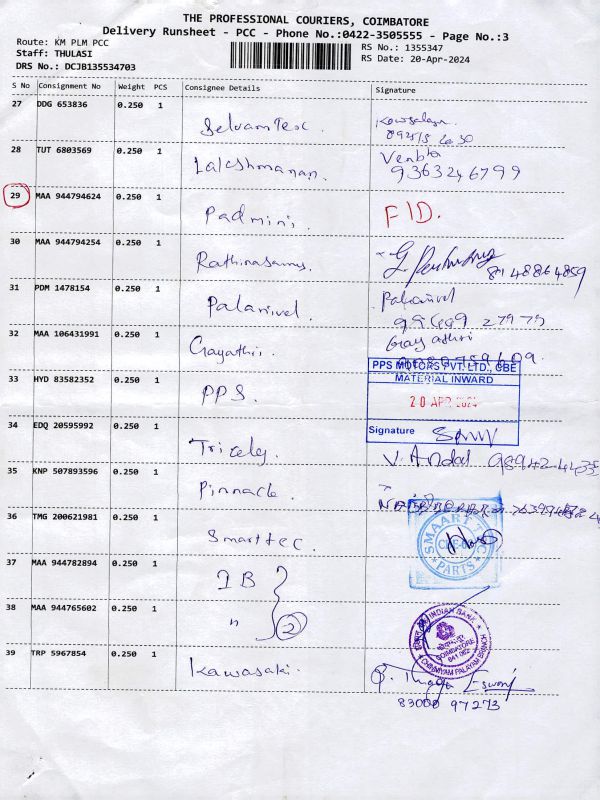 THE PROFESSIONAL COURIERS, COIMBATORE
Delivery Runsheet - PCC - Phone No.:0422-3505555 - Page No.:3
Route: KM PLM PCC
Staff: THULASI
DRS No.: DCJB135534703
RS No.: 1355347
RS Date: 20-Apr-2024
S No Consignment No Weight PCS Consignee Details Signature
27 DDG 653836 0.250 1 Selvam Tesc.
28 TUT 6803569 0.250 1 Lakshmanan. Venbha
9363246799
29 MAA 944794624 0.250 1 Padmini. FID.
30 MAA 944794254 0.250 1 Rathinasamy. 8148864859
31 PDM 1478154 0.250 1 Palanivel. Palanivel
99699 27979
32 MAA 106431991 0.250 1 Gayathri. Gayathri
33 HYD 83582352 0.250 1 PPS.
PPS MOTORS PVT. LTD., CBE
MATERIAL INWARD
20 APR 2024
Signature
34 EDQ 20595992 0.250 1 V. Andal
35 KNP 507893596 0.250 1 Pinnacle.
36 TMG 200621981 0.250 1 Smarttec.
SMAART TEC
PARTS
37 MAA 944782894 0.250 1 IB
38 MAA 944765602 0.250 1 " 2
INDIAN BANK
COIMBATORE
CHINNIYAM PALAYAM BRANCH
39 TRP 5967854 0.250 1 Kawasaki.
83000 97273